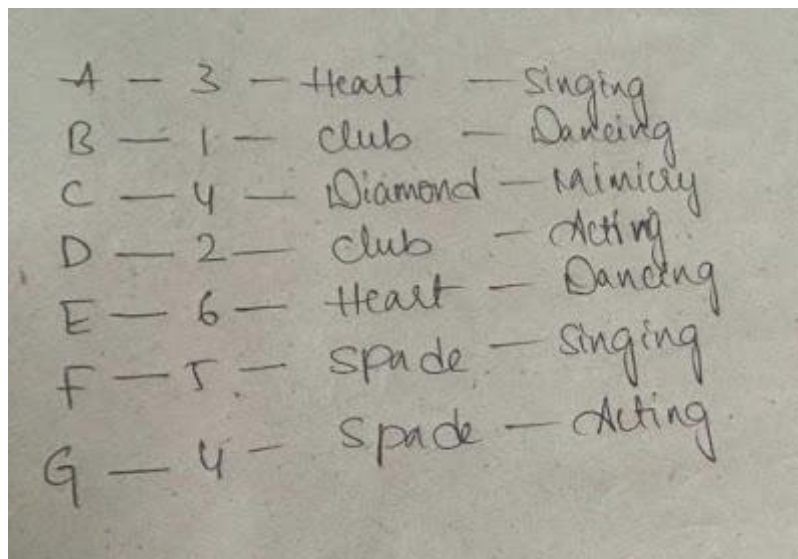 A — 3 — Heart — Singing
B — 1 — Club — Dancing
C — 4 — Diamond — Mimicry
D — 2 — Club — Acting
E — 6 — Heart — Dancing
F — 5 — Spade — Singing
G — 4 — Spade — Acting